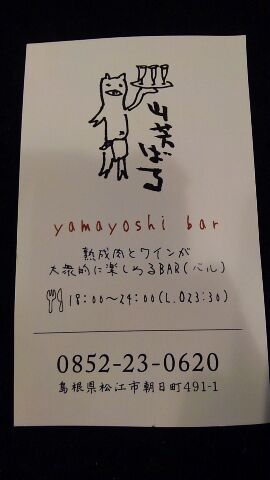 山芳ばる
yamayoshi bar
熟成肉とワインが
大衆的に楽しめるBAR(バル)
18:00〜24:00(L.O23:30)
0852-23-0620
島根県松江市朝日町491-1